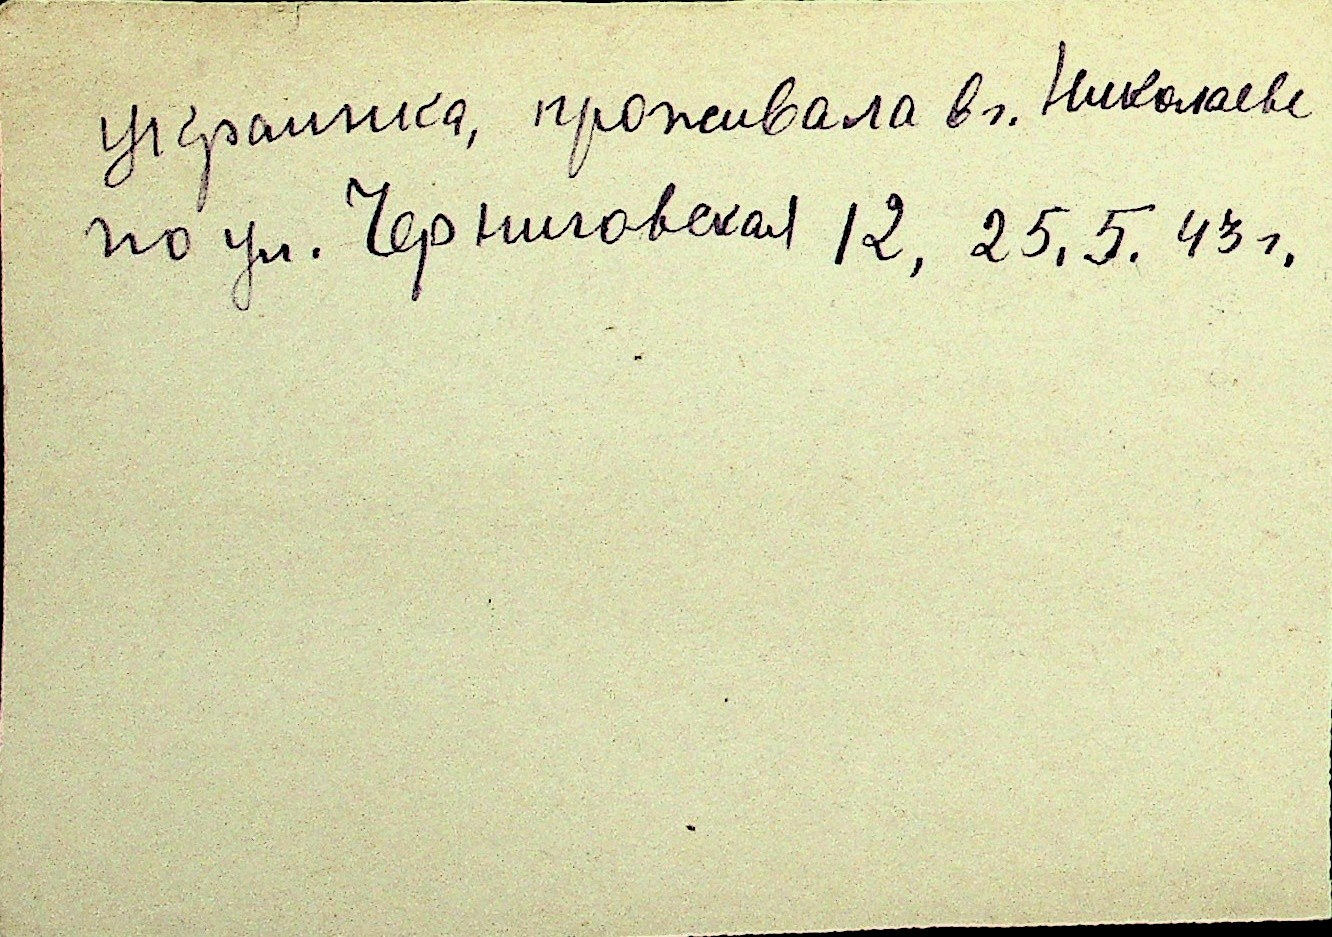 украинка, проживала в г. Николаеве
по ул. Черниговская 12, 25.5.43 г.